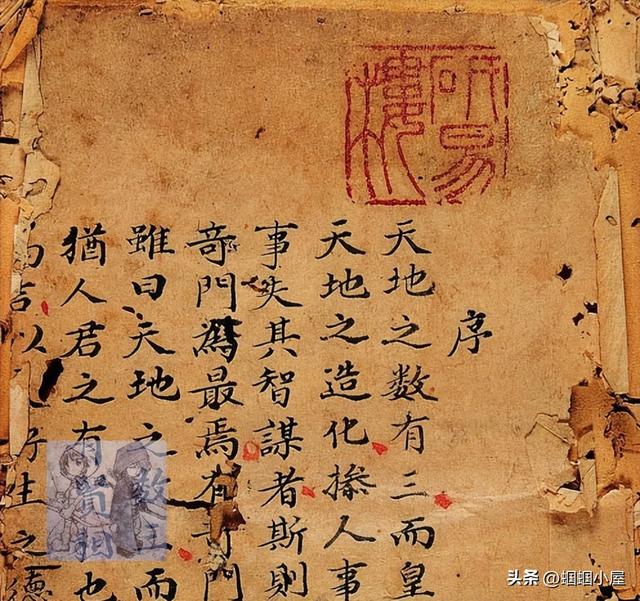 研易樓
序
天地之数有三而皇
天地之造化摻人事
事失其智謀者斯則
竒門為最焉有奇門
雖曰天地之数主而
猶人君之有相也
吉以生之德
头条 @蝈蝈小屋